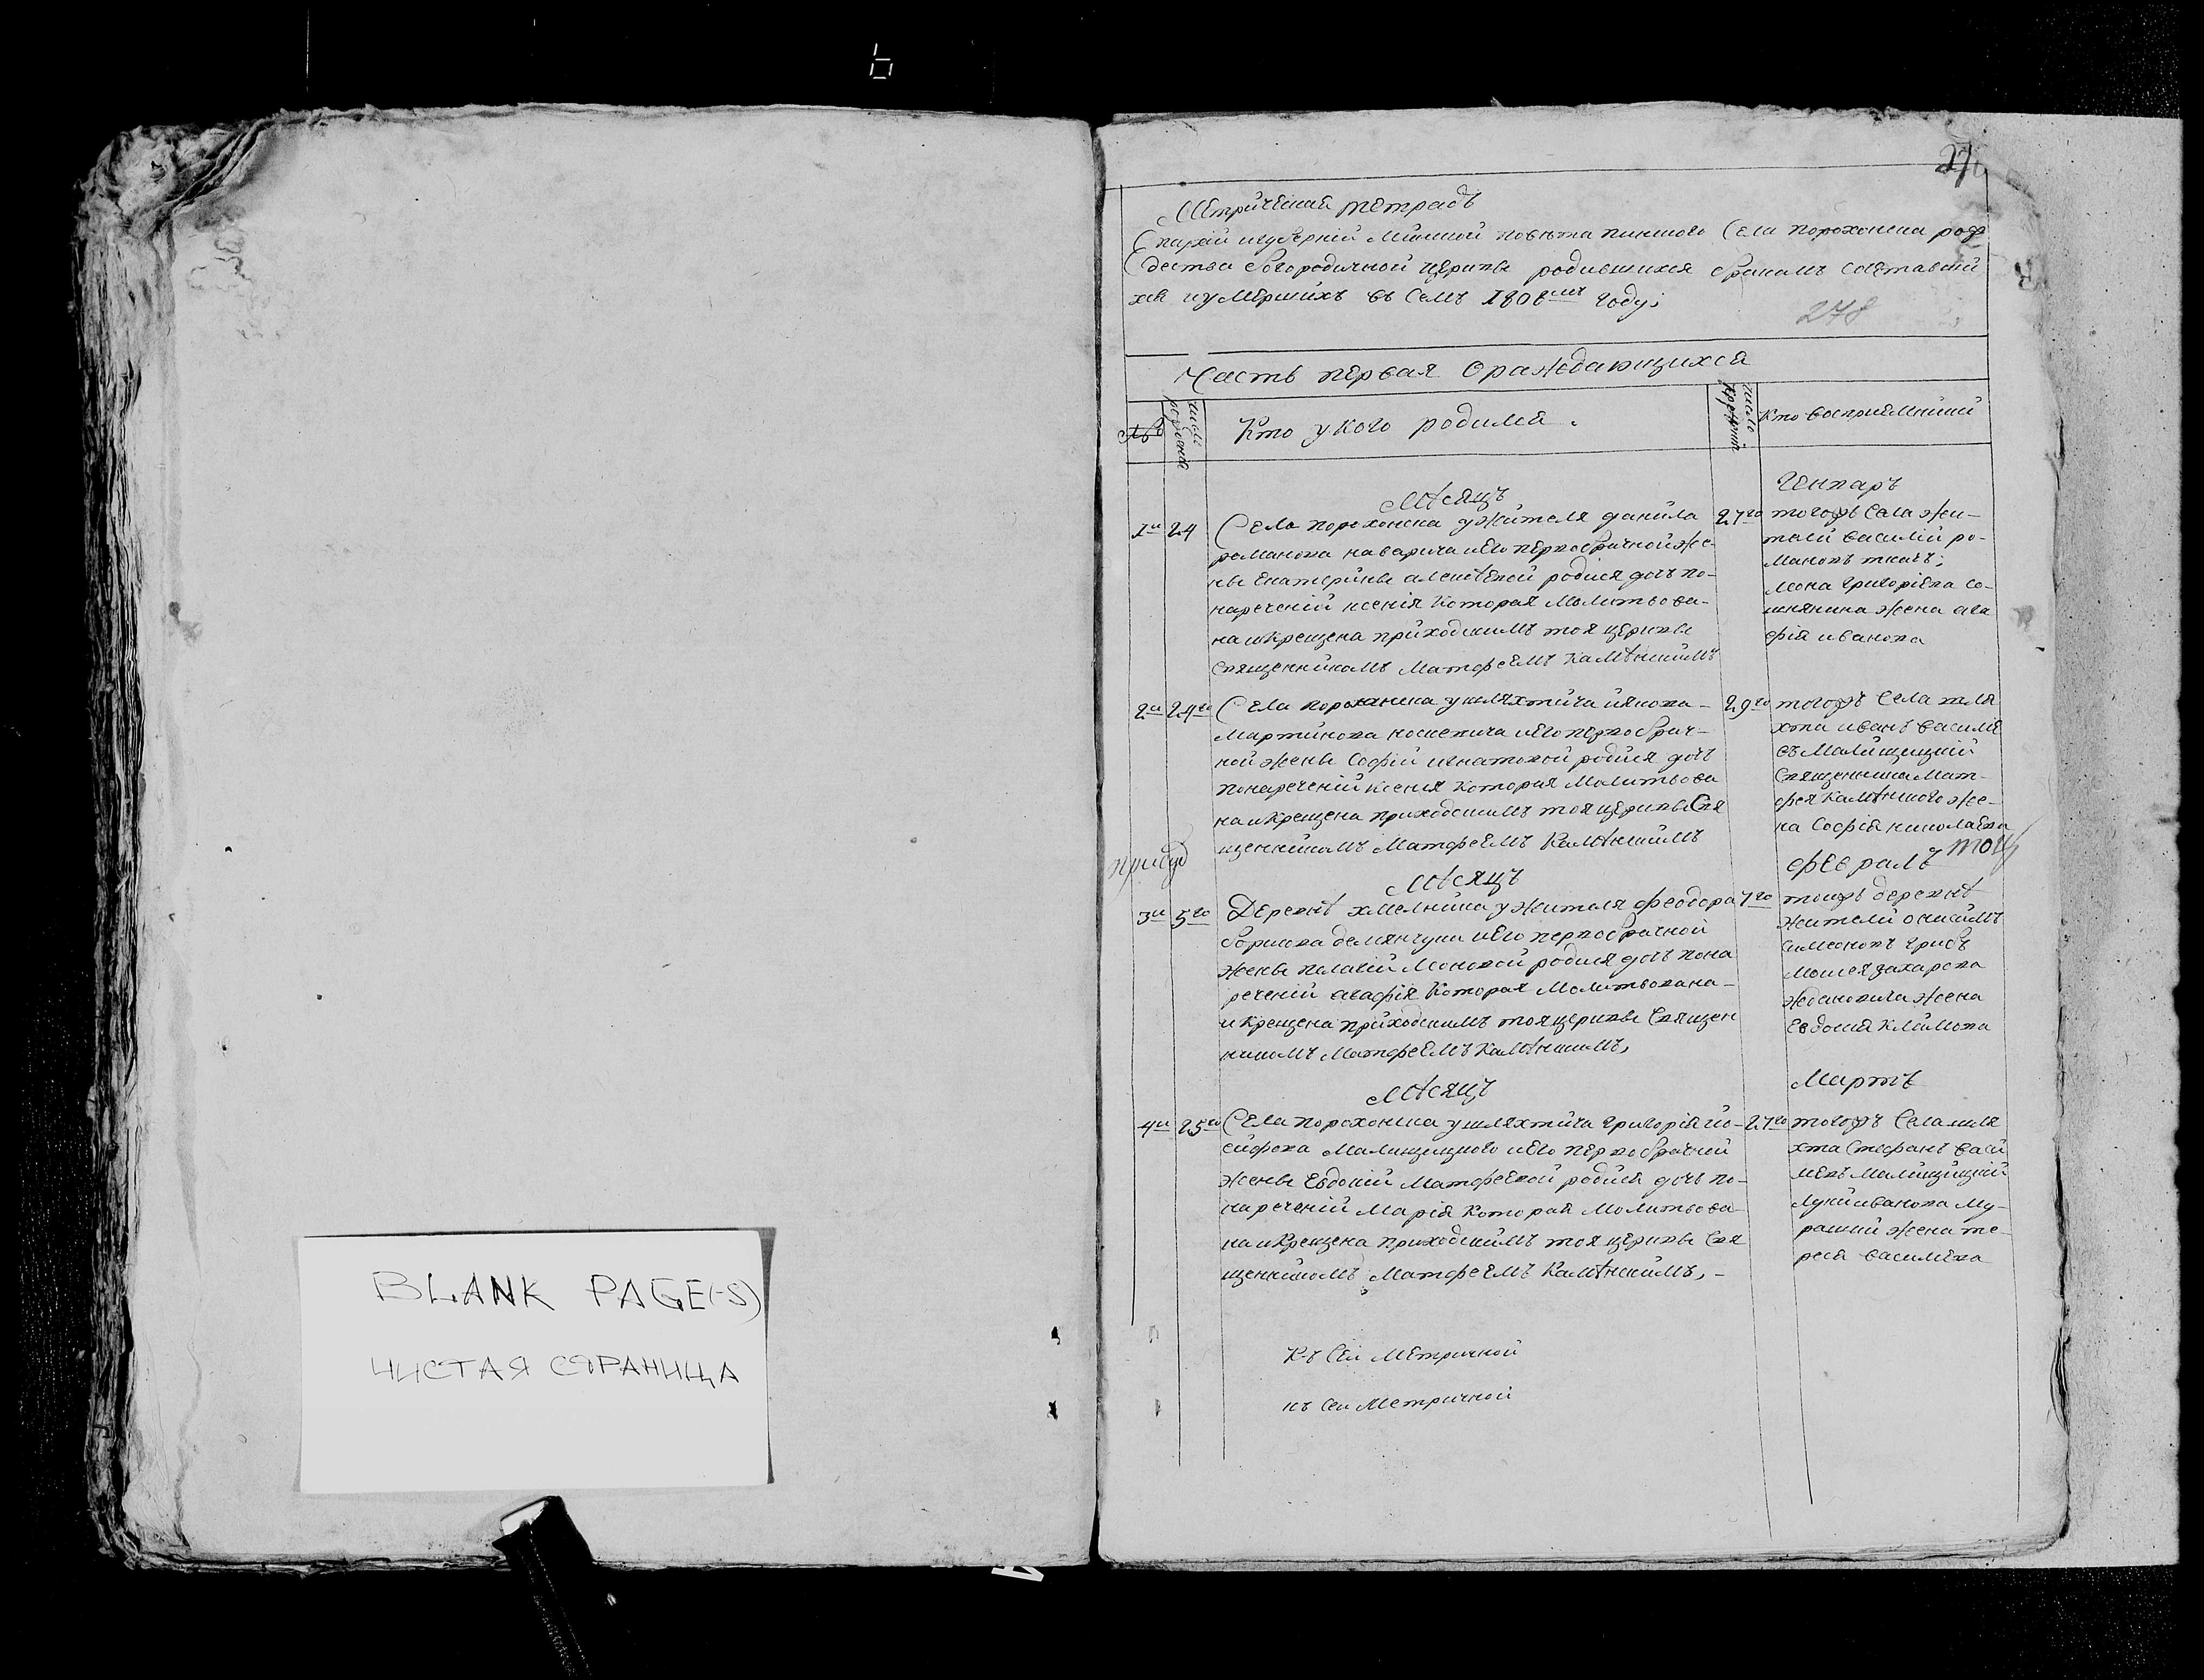 BLANK PAGE(-S)
ЧИСТАЯ СТРАНИЦА
27
Метрическая тетрадь
Епархіи и губерніи Минской повѣта пинского Села порохонска рож
дества богородичной церкви родившихся бракомъ Соетавшй
хся и умершихъ въ Семъ 1808мъ году;
278
Часть первая О раждающихся
№
число рожденія
Кто у кого родился.
число крещенія
Кто восприемники
Мѣсяцъ
Генваръ
1й 24 Села порохонска ужителя данйла
романова наварича иего первобрачной же-
ны Екатерйны алексѣевой родйся дочъ по-
нареченіи ксенія Которая Молитвова-
на икрещена прйходскимъ тоя церкви
Священнйкомъ Матфеемъ Камѣнскимъ
27го тогожъ Села жи-
тели василій ро-
мановъ ткачъ;
григоріева со-
жена ага
фія иванова
2й 24го Села порохонска ушляхтйча
Мартйнова иего первобрач-
ной жены Софіи игнатовой родйся дочъ
понареченіи ксенія Которая Молитвова
на икрещена приходскимъ тоя церкви Свя
щеннйкомъ Матфеемъ Камѣнскймъ
29го тогожъ Села шля
хта иванъ василіе
въ Малйщицкій
Священника Мат-
фея Камѣнского же-
на Софія николаева
Мѣсяцъ
февралъ
3й 5го Деревнѣ хмелнйка ужителя феодора
борисова демянчука иего первобрачной
жены пелагіи родися дочъ пона
реченіи агафія Которая Молитвована
икрещена прйходскимъ тоя церкви Священ
никомъ Матфеемъ Камѣнскимъ,
7го тоижъ деревнѣ
жители онисймъ
симеоновъ грибъ
захарова
ждановича жена
Евдокія Клймова
Мѣсяцъ
Мартъ
4й 25го Села порохонска ушляхтйча григорія іо-
сйфова Малищицкого иего первобрачной
жены Евдокіи Матфеевой родйся дочъ по-
нареченіи Марія Которая Молитвова
на икрещена приходскймъ тоя церкви Свя
щеннйкомъ Матфеемъ Камѣнскймъ,
27го тогожъ Села шля
хта Стефанъ васй
лѣвъ Малищицкій
лукй иванова Му-
рашки жена те-
реса василѣва
Къ Сей Метричной
къ Сей Метричной